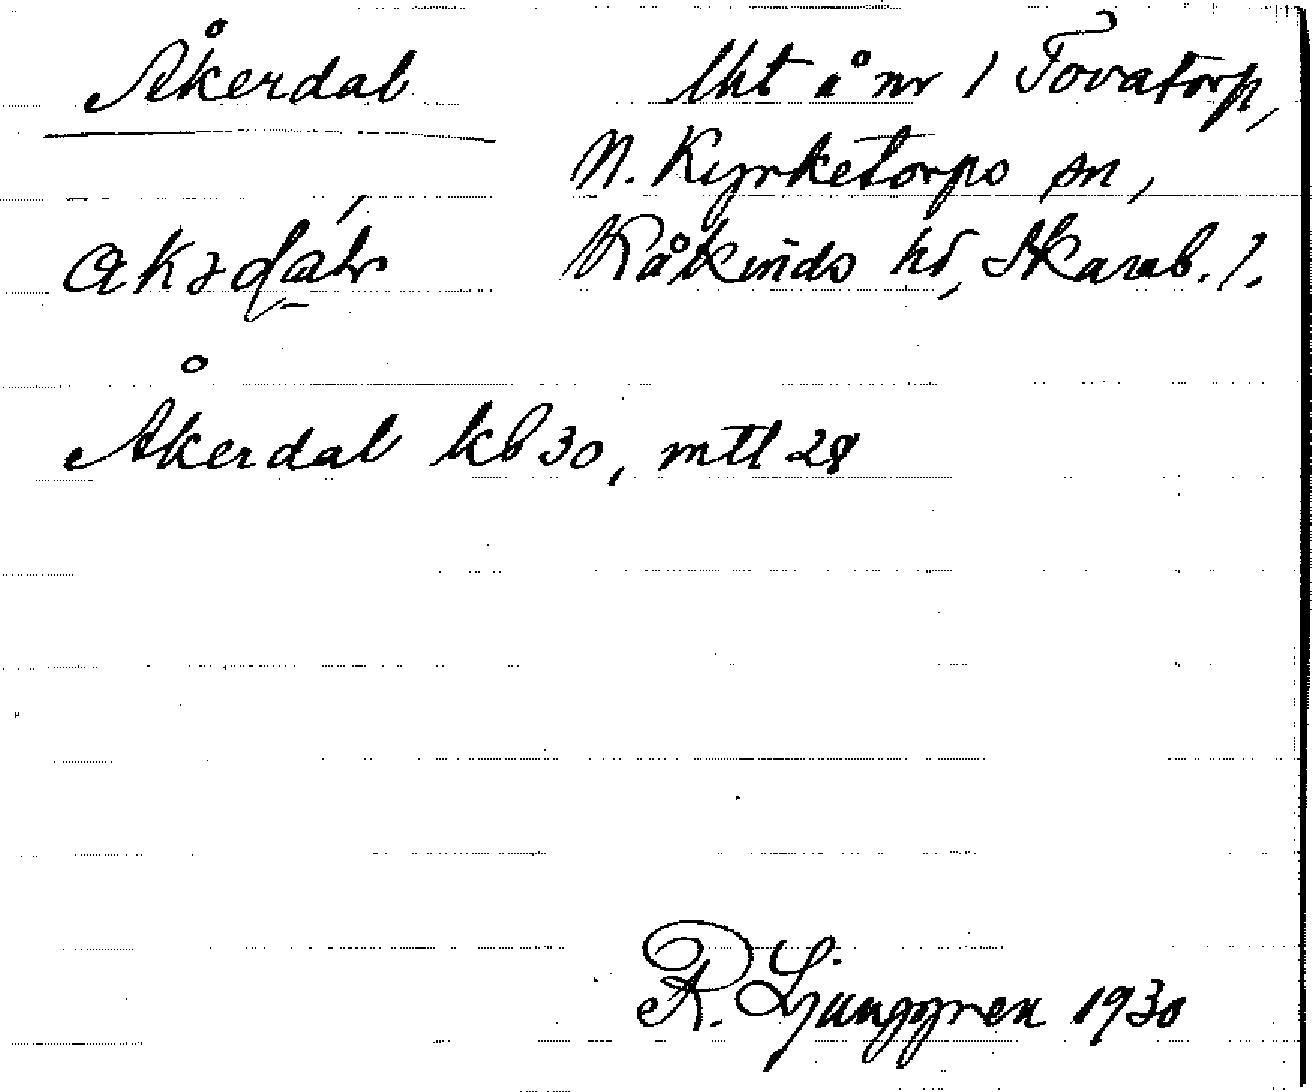 Åkerdal
Uht å nr 1 Tovatorp,
N. Kyrketorps sn,
Kåkinds hd, Skarab. l.
Åkerdal kb 30, mtl 28
R. Ljunggren 1930